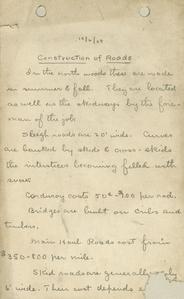 Construction of Roads
In the north woods these are made
in summer & fall. They are located
as well as the skidways by the fore-
man of the job.
Sleigh roads are 20' wide. Curves
are banked by skids & cross-skids
the interstices becoming filled with
snow.
Corduroy costs 50¢ - $1.00 per rod.
Bridges are built on cribs and
timbers.
Main Haul Roads cost from
$350-800 per mile.
Skid roads are generally only
6' wide. Their cost depends